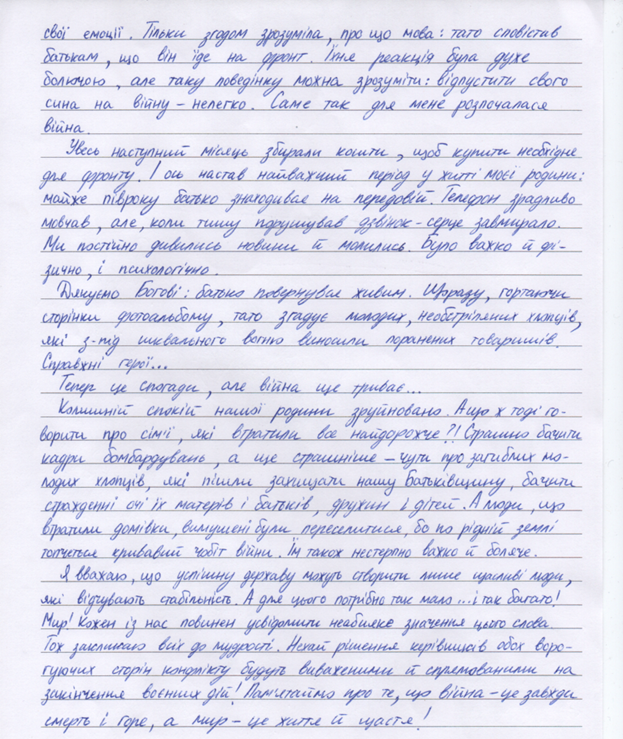 свої емоції. Тільки згодом зрозуміла, про що мова: тато сповістив
батькам, що він іде на фронт. Їхня реакція була дуже
болючою, але таку поведінку можна зрозуміти: відпустити свого
сина на війну – нелегко. Саме так для мене розпочалася
війна.
Увесь наступний місяць збирали кошти, щоб купити необхідне
для фронту. І ось настав найважчий період у житті моєї родини:
майже півроку батько знаходився на передовій. Телефон зрадливо
мовчав, але, коли тишу порушував дзвінок – серце завмирало.
Ми постійно дивились новини й молились. Було важко й фі-
зично, і психологічно.
Дякуємо Богові: батько повернувся живим. Щоразу, гортаючи
сторінки фотоальбому, тато згадує молодих, необстріляних хлопців,
які з-під шквального вогню виносили поранених товаришів.
Справжні герої...
Тепер це спогади, але війна ще триває...
Колишній спокій нашої родини зруйновано. А що ж тоді го-
ворити про сімії, які втратили все найдорожче?! Страшно бачити
кадри бомбардувань, а ще страшніше – чути про загиблих мо-
лодих хлопців, які пішли захищати нашу Батьківщину, бачити
стражденні очі їх матерів і батьків, дружин і дітей. А люди, що
втратили домівки, вимушені були переселитися, бо по рідній землі
топчеться кривавий чобіт війни. Їм також нестерпно важко й боляче.
Я вважаю, що успішну державу можуть створити лише щасливі люди,
які відчувають стабільність. А для цього потрібно так мало... і так багато!
Мир! Кожен із нас повинен усвідомити неабияке значення цього слова.
Тож закликаю всіх до мудрості. Нехай рішення керівників обох воро-
гуючих сторін конфлікту будуть виваженими й спрямованими на
закінчення воєнних дій! Пам'ятаймо про те, що війна – це завжди
смерть і горе, а мир – це життя й щастя!